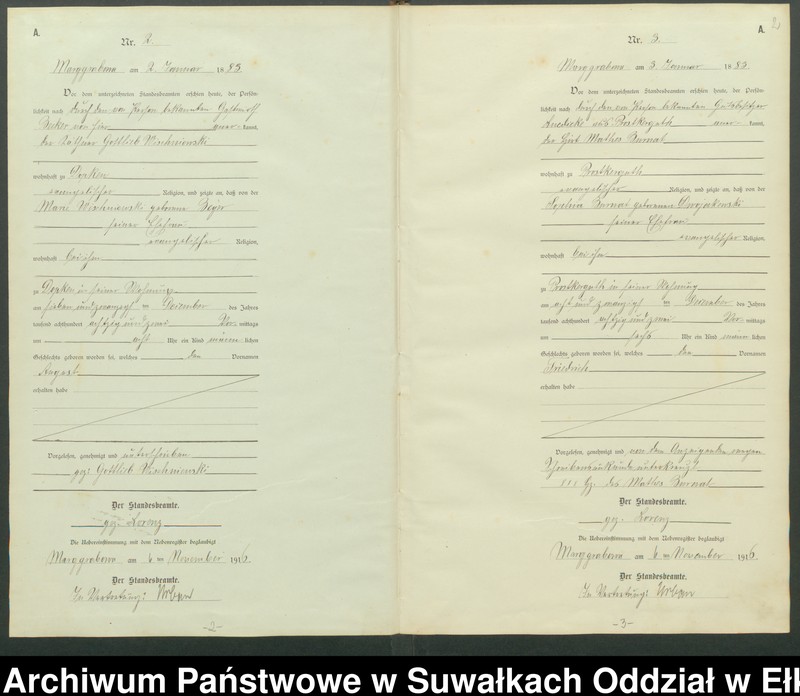 A.
Nr. 2.
Marggrabowa am 2 Januar 1883
Vor dem unterzeichneten Standesbeamten erschien heute, der Persön-
lichkeit nach durch den von Person bekannten Gastwirth
von hier aner kannt,
der Gottlieb Wischniewski
wohnhaft zu
evangelischer Religion, und zeigte an, daß von der
Marie Wischniewski geborene
seiner Ehefrau
evangelischer Religion,
wohnhaft bei ihm
zu in seiner Wohnung
am sieben und zwanzigsten Dezember des Jahres
tausend achthundert achtzig und zwei Vor mittags
um acht Uhr ein Kind männ lichen
Geschlechts geboren worden sei, welches den Vornamen
August
erhalten habe
Vorgelesen, genehmigt und unterschrieben
gez: Gottlieb Wischniewski
Der Standesbeamte.
gez. Lorenz
Die Uebereinstimmung mit dem Nebenregister beglaubigt
Marggrabowa am 6 ten November 1916
Der Standesbeamte.
In Vertretung: Urban
-2-
A. 2
Nr. 3.
Marggrabowa am 3 Januar 1883
Vor dem unterzeichneten Standesbeamten erschien heute, der Persön-
lichkeit nach durch den von Person bekannten Gutsbesitzer
aus aner kannt,
der Hirt Mathes Burnat
wohnhaft zu
evangelischer Religion, und zeigte an, daß von der
Sophia Burnat geborenen
seiner Ehefrau
evangelischer Religion,
wohnhaft bei ihm
zu in seiner Wohnung
am acht und zwanzigsten Dezember des Jahres
tausend achthundert achtzig und zwei Vor mittags
um sechs Uhr ein Kind männ lichen
Geschlechts geboren worden sei, welches den Vornamen
Friedrich
erhalten habe
Vorgelesen, genehmigt und von dem Anzeigenden wegen
Schreibensunkunde unterkreuzt
+++ Hz. des Mathes Burnat
Der Standesbeamte.
gez. Lorenz
Die Uebereinstimmung mit dem Nebenregister beglaubigt
Marggrabowa am 6 ten November 1916
Der Standesbeamte.
In Vertretung: Urban
-3-
Archiwum Państwowe w Suwałkach Oddział w Eł